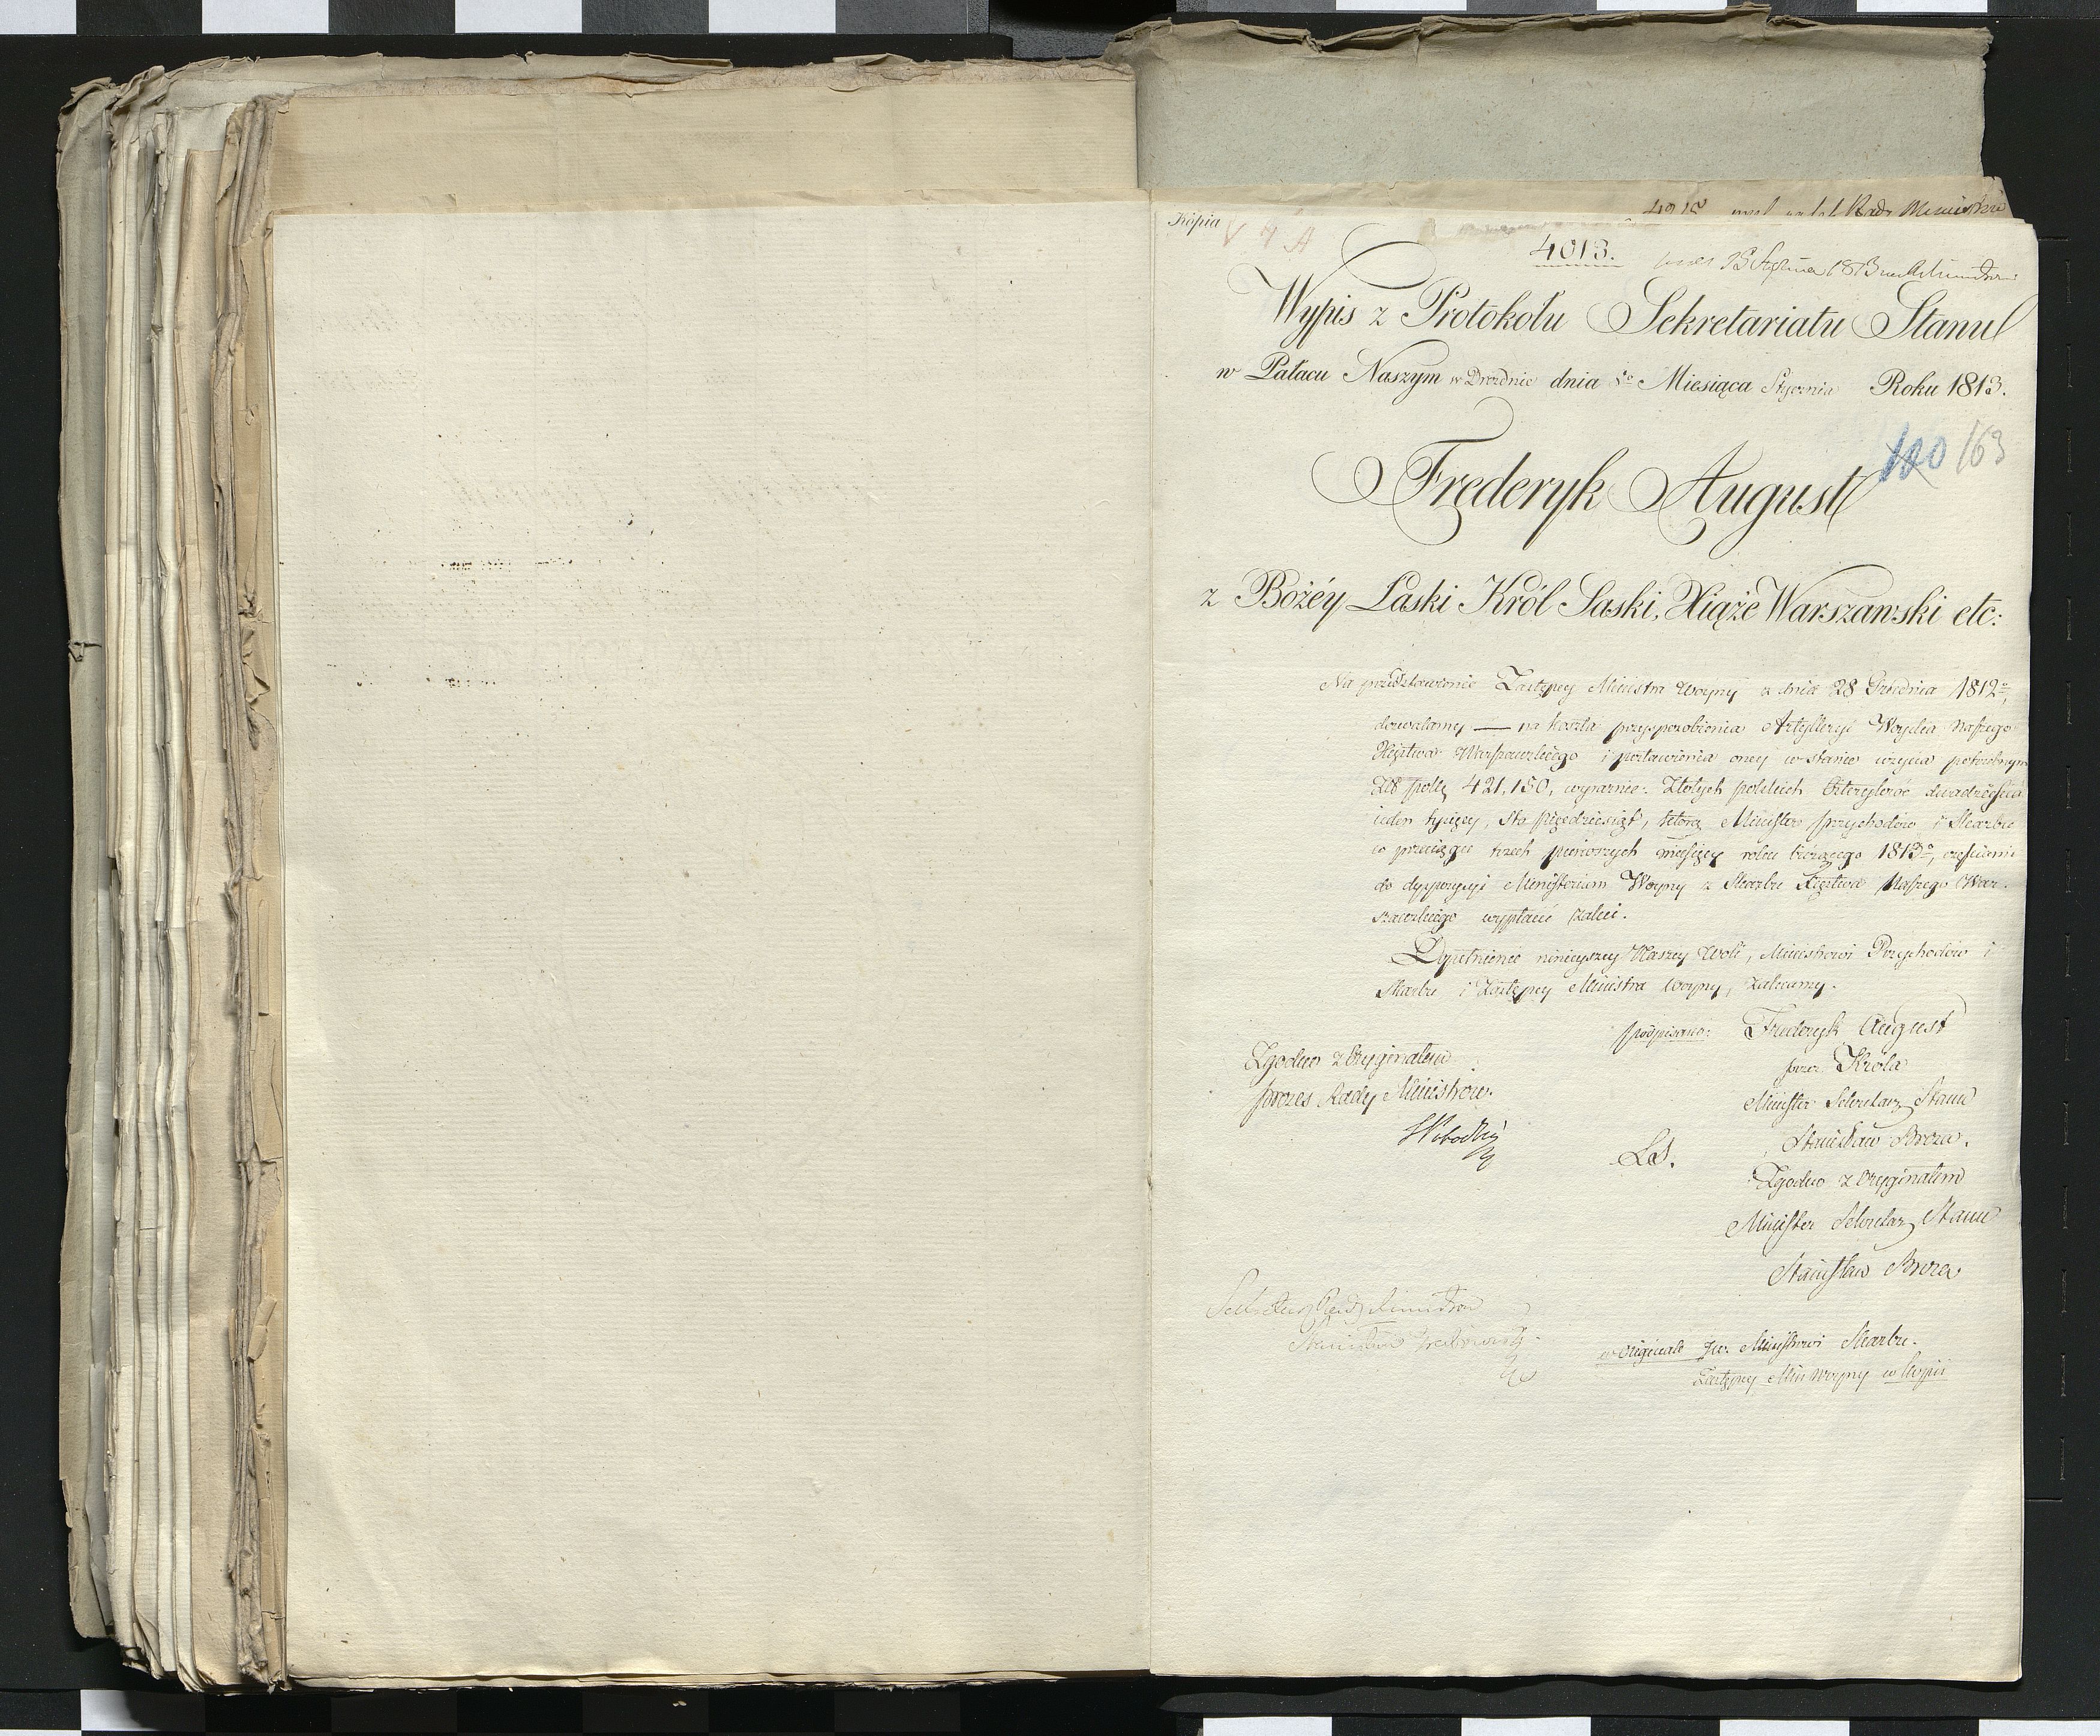 Kopia
4013.
Wypis z Protokołu Sekretariatu Stanu
w Pałacu Naszym w Dreźnie dnia 5º Miesiąca Stycznia Roku 1813.
110 163
Frederyk August
z Bożéy Łaski Król Saski, Xiąże Warszawski etc:
Na przedstawienie Zastępcy Ministra Woyny z dnia 28 Grudnia 1812º,
dozwalamy — na koszta przysposobienia Artylleryi Woyska Naszego
Xięstwa Warszawskiego i postawienia oney w stanie użycia potrzebnym
Złł polls 421,150, wyraznie: Złotych polskich Czterysta dwadzieścia
ieden tysięcy, sto pięćdziesiąt, którą Minister przychodów i Skarbu
w przeciągu trzech pierwszych miesięcy roku bieżącego 1813º, częściami
do dyspozycyi Ministerium Woyny z Skarbu Xięstwa Naszego War-
szawskiego wypłacić zaleci.
Dopełnienie ninieyszey Naszey Woli, Ministrowi Przychodów i
Skarbu i Zastępcy Ministra Woyny, zalecamy.
podpisano: Frederyk August
przez Króla
Minister Sekretarz Stanu
Stanisław Breza.
Zgodno z Oryginałem
Prezes Rady Ministrów.
LS.
Zgodno z Oryginałem
Minister Sekretarz Stanu
Stanisław Breza
Sekretarz Rady Ministrów
Stanisław
w originale JW. Ministrowi Skarbu.
Zastępcy Min Woyny w kopii